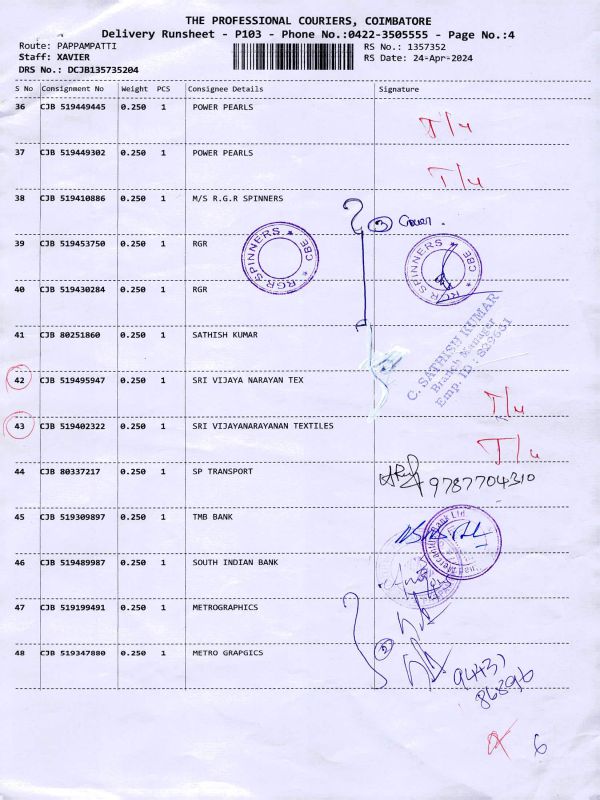 THE PROFESSIONAL COURIERS, COIMBATORE
Delivery Runsheet - P103 - Phone No.:0422-3505555 - Page No.:4
Route: PAPPAMPATTI
RS No.: 1357352
Staff: XAVIER
RS Date: 24-Apr-2024
DRS No.: DCJB135735204
S No Consignment No Weight PCS Consignee Details Signature
36 CJB 519449445 0.250 1 POWER PEARLS
T/u
37 CJB 519449302 0.250 1 POWER PEARLS
T/u
38 CJB 519410886 0.250 1 M/S R.G.R SPINNERS
3
39 CJB 519453750 0.250 1 RGR
RGR SPINNERS ★ CBE ★
RGR SPINNERS ★ CBE ★
40 CJB 519430284 0.250 1 RGR
41 CJB 80251860 0.250 1 SATHISH KUMAR
C. SATHISH KUMAR
Branch Manager
42 CJB 519495947 0.250 1 SRI VIJAYA NARAYAN TEX
T/u
43 CJB 519402322 0.250 1 SRI VIJAYANARAYANAN TEXTILES
T/u
44 CJB 80337217 0.250 1 SP TRANSPORT
9787704310
45 CJB 519309897 0.250 1 TMB BANK
Mercantile Bank Ltd.
46 CJB 519489987 0.250 1 SOUTH INDIAN BANK
47 CJB 519199491 0.250 1 METROGRAPHICS
48 CJB 519347880 0.250 1 METRO GRAPGICS
6